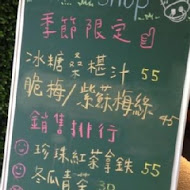 shop
季節限定
冰糖桑椹汁 55
脆梅/紫蘇梅綠 45
銷售排行
珍珠紅茶拿鐵 55
冬瓜青茶 30